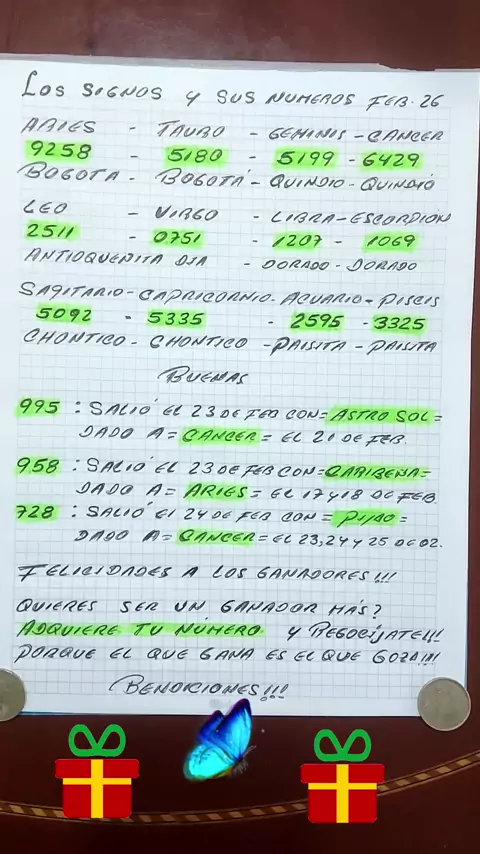 LOS SIGNOS Y SUS NUMEROS FEB. 26
ARIES - TAURO - GEMINIS - CANCER
9258 - 5180 - 5199 - 6429
BOGOTA - BOGOTÁ - QUINDIO - QUINDIO
LEO - VIRGO - LIBRA - ESCORPION
2511 - 0751 - 1207 - 1069
ANTIOQUEÑITA DIA - DORADO - DORADO
SAGITARIO - CAPRICORNIO - ACUARIO - PISCIS
5092 - 5335 - 2595 - 3325
CHONTICO - CHONTICO - PAISITA - PAISITA
BUENAS
995 : SALIÓ EL 23 DE FEB CON = ASTRO SOL =
DADO A = CANCER = EL 21 DE FEB.
958 : SALIÓ EL 23 DE FEB CON = CARIBEÑA =
DADO A = ARIES = EL 17 Y 18 DE FEB
728 : SALIÓ El 24 DE FEB CON = PIJAO =
DADO A = CANCER = EL 23, 24 Y 25 DE 02.
FELICIDADES A LOS GANADORES!!!
QUIERES SER UN GANADOR MÁS?
ADQUIERE TU NÚMERO Y REGOCÍJATE!!!
PORQUE EL QUE GANA ES EL QUE GOZA!!!
BENDICIONES!!!